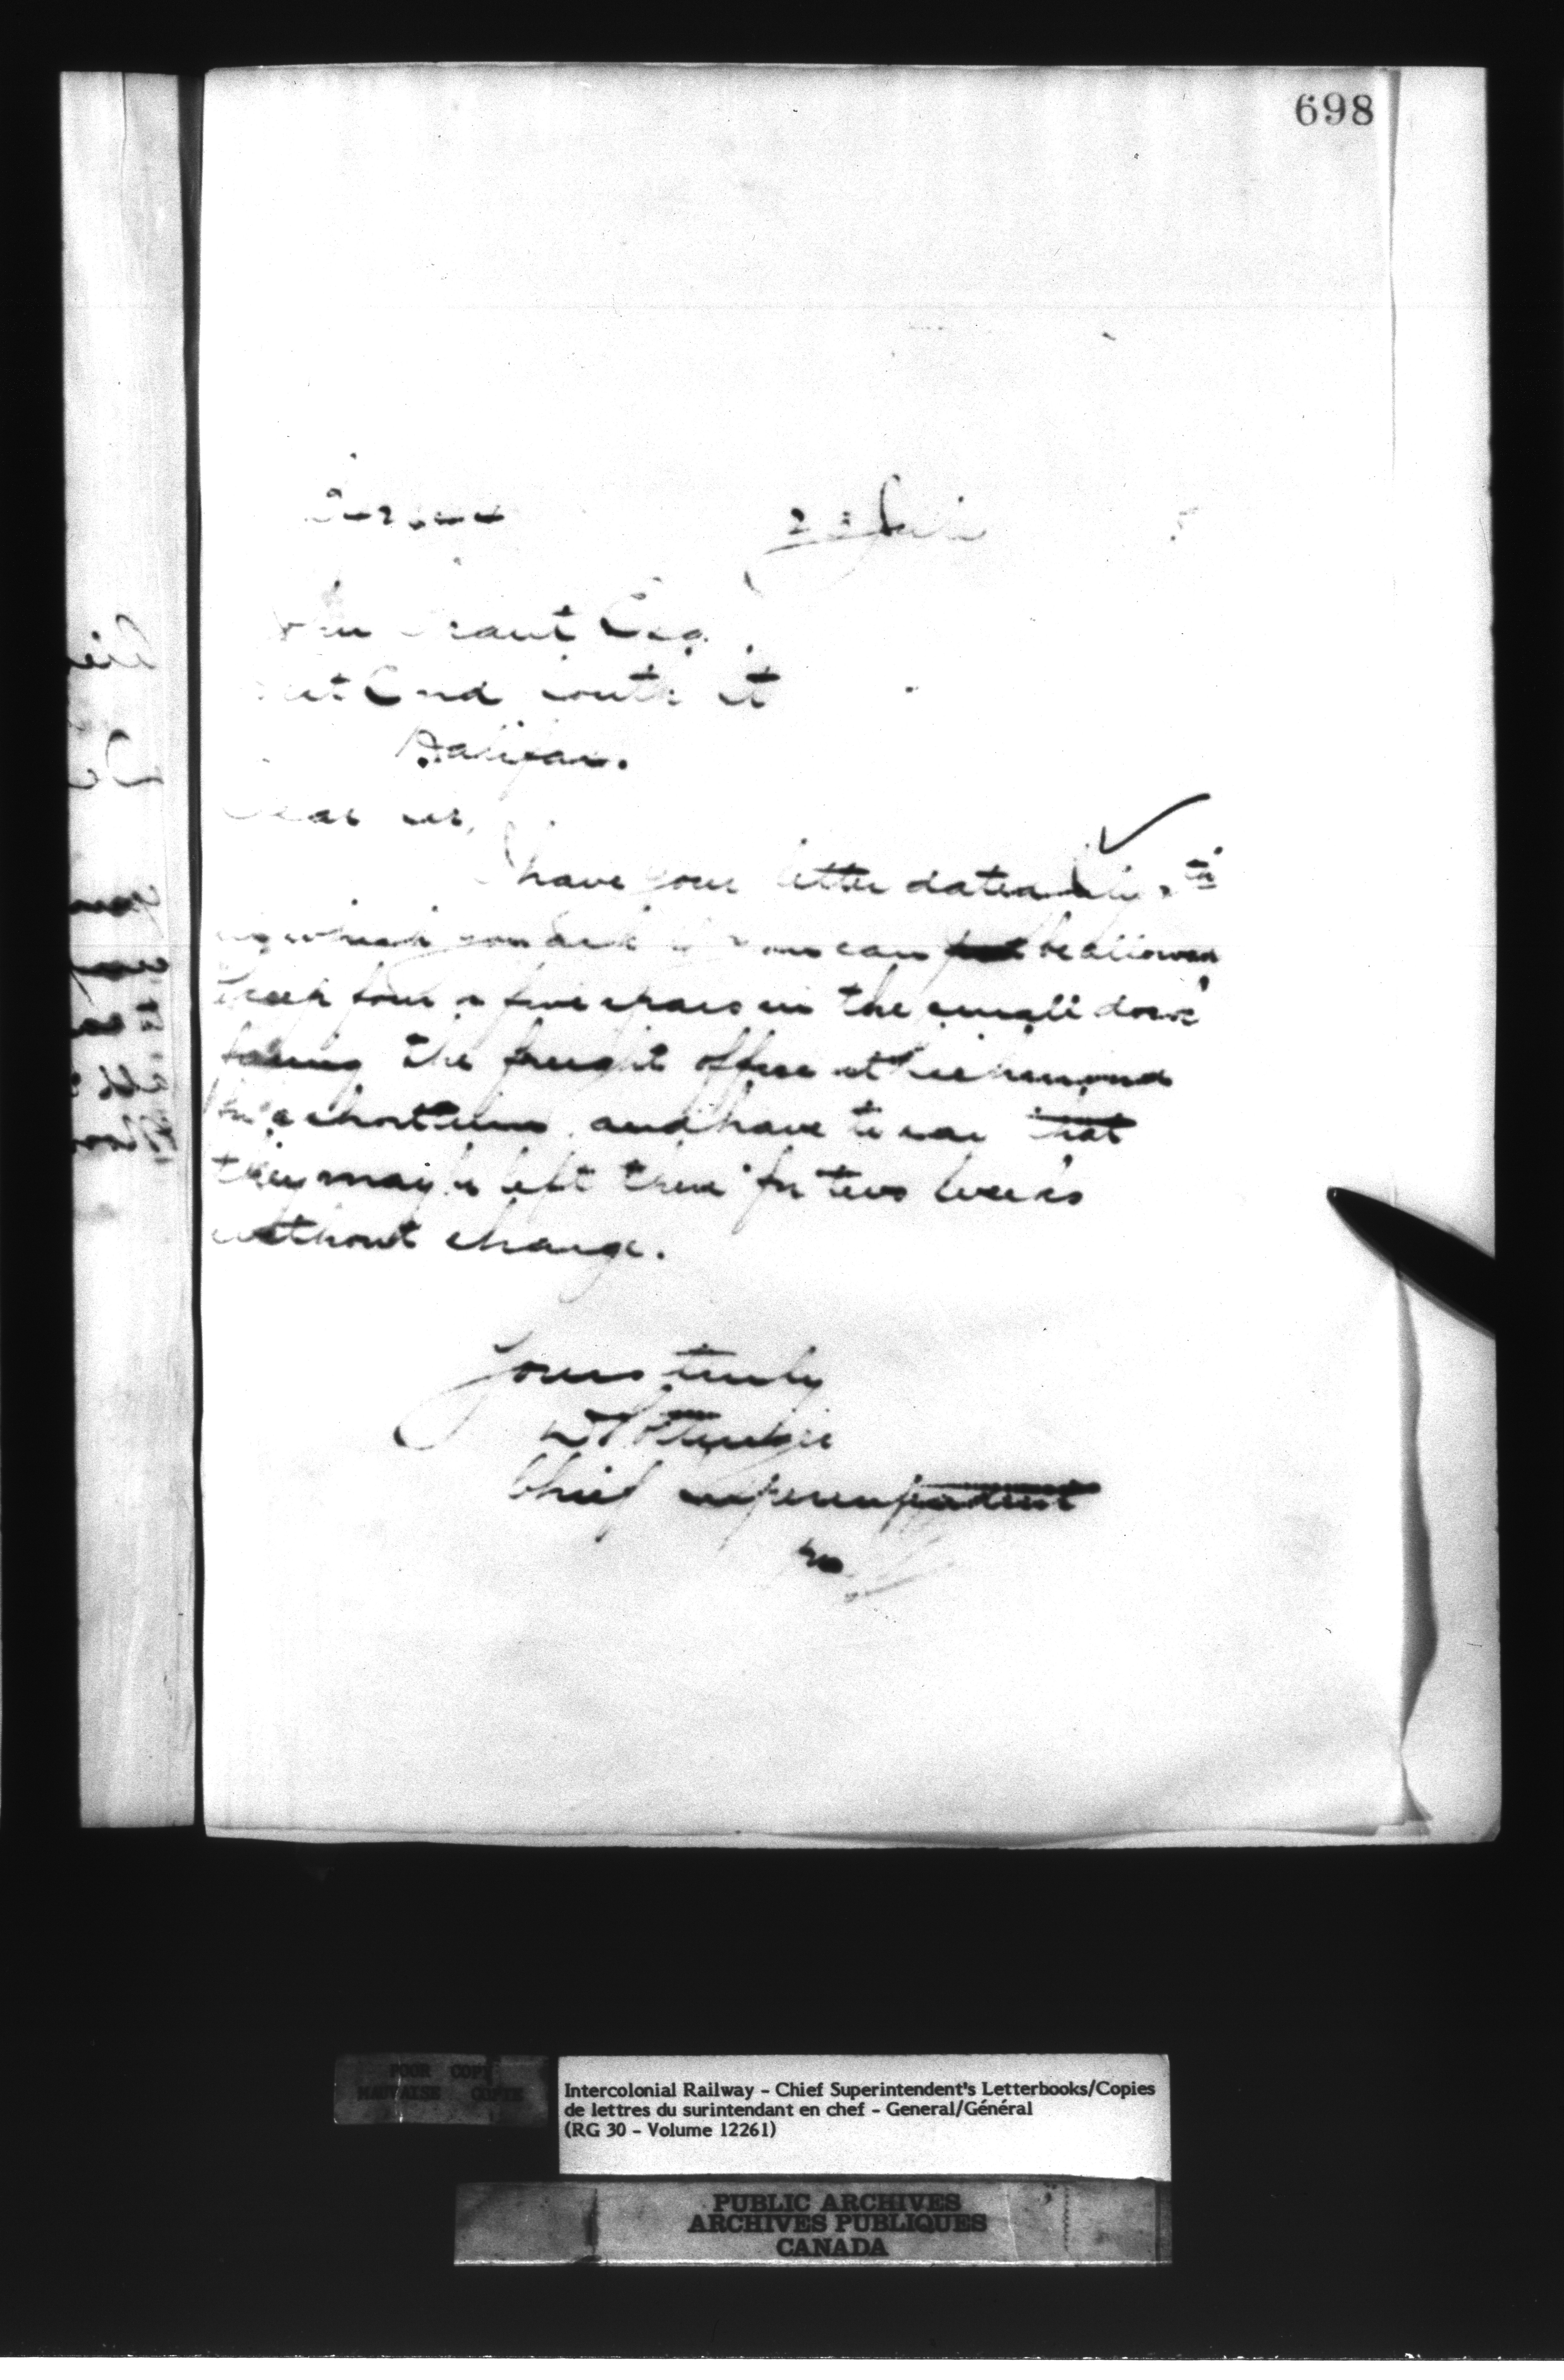 698
23 July
John Grant Esq.
West End South St
Halifax.
Dear Sir,
I have your letter dated July
in which you ask if you can be allowed
keep four or five spars in the small dock
facing the freight office at Richmond
for a short time, and have to say that
they may be left there for two weeks
without charge.
Yours truly
Chief Superintendent
POOR COPY
MAUVAISE COPIE
Intercolonial Railway - Chief Superintendent's Letterbooks/Copies
de lettres du surintendant en chef - General/Général
(RG 30 - Volume 12261)
PUBLIC ARCHIVES
ARCHIVES PUBLIQUES
CANADA